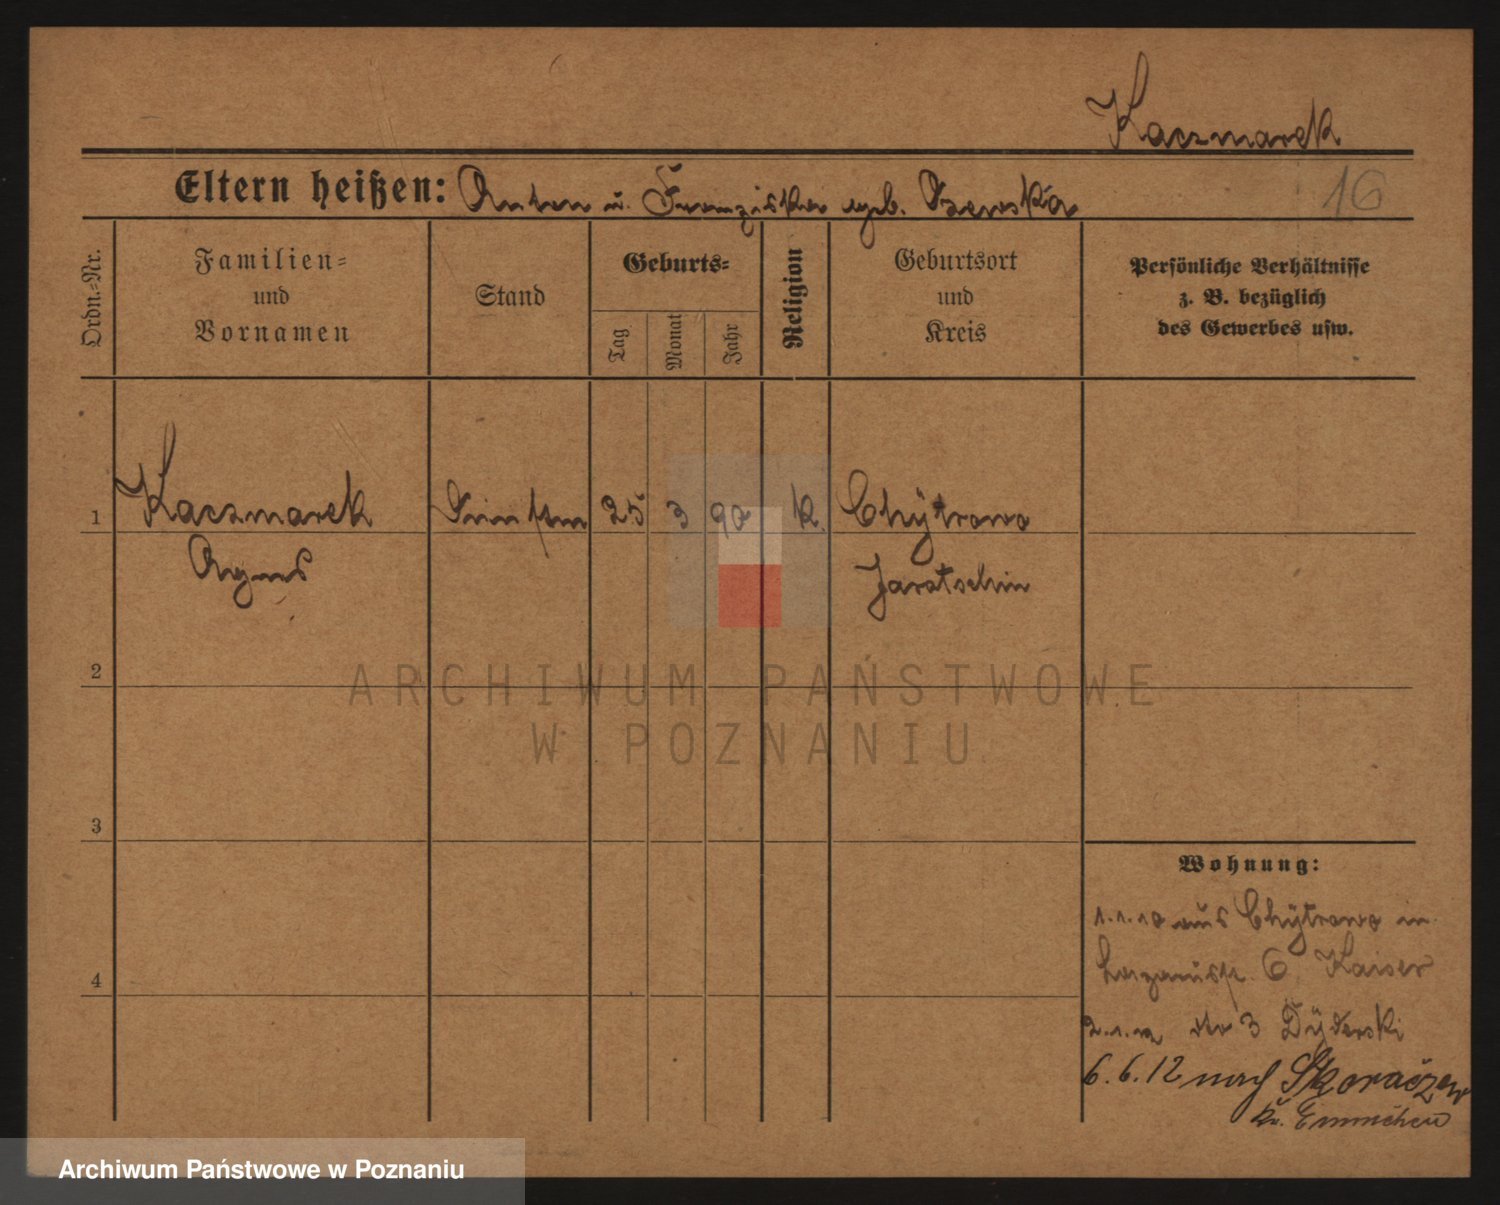 Kaczmarek
Eltern heißen: Anton u. Franziska geb.
16
Ordn.=Nr.
Familien=
und
Vornamen
Stand
Geburts=
Tag
Monat
Jahr
Religion
Geburtsort
und
Kreis
Persönliche Verhältnisse
z. B. bezüglich
des Gewerbes usw.
1 Kaczmarek 25 3 90 k. Chÿtrowo
Agnes Jarotschin
2
3
4
Wohnung:
1.1.10 aus Chÿtrowo in
6 Kaiser
3 Dÿderski
6.6.12 nach Skoraczew
ARCHIWUM PAŃSTWOWE
W POZNANIU
Archiwum Państwowe w Poznaniu